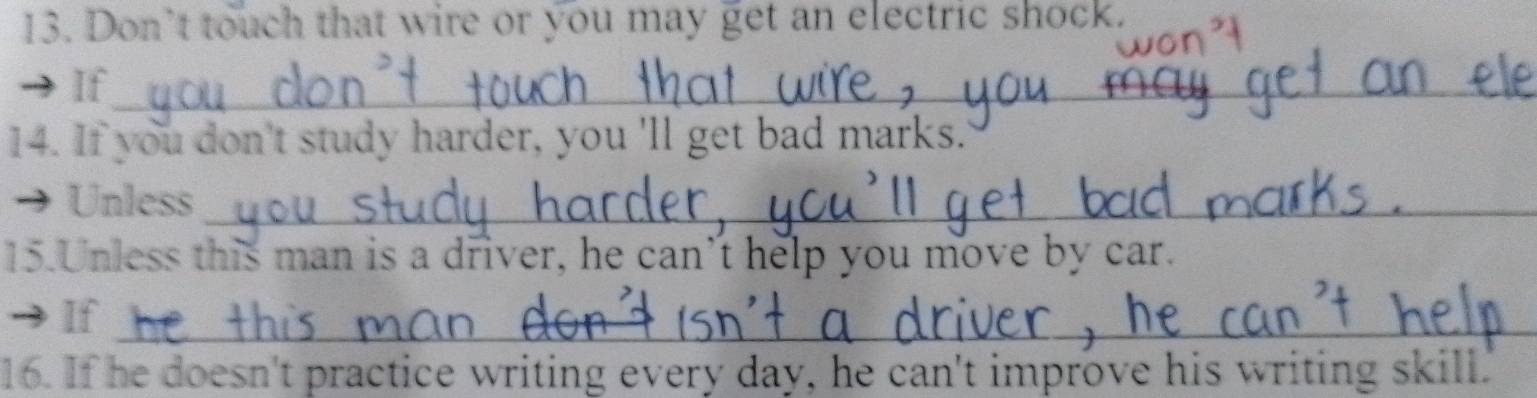 13. Don't touch that wire or you may get an electric shock.
won't
→ If you don't touch that wire, you may get an ele
14. If you don't study harder, you 'll get bad marks.
→ Unless you study harder, you'll get bad marks.
15.Unless this man is a driver, he can't help you move by car.
→ If he this man don't isn't a driver, he can't help
16. If he doesn't practice writing every day, he can't improve his writing skill.